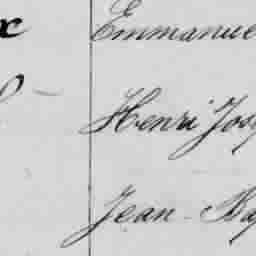 Emmanuel
Henri Jos
Jean-Ba